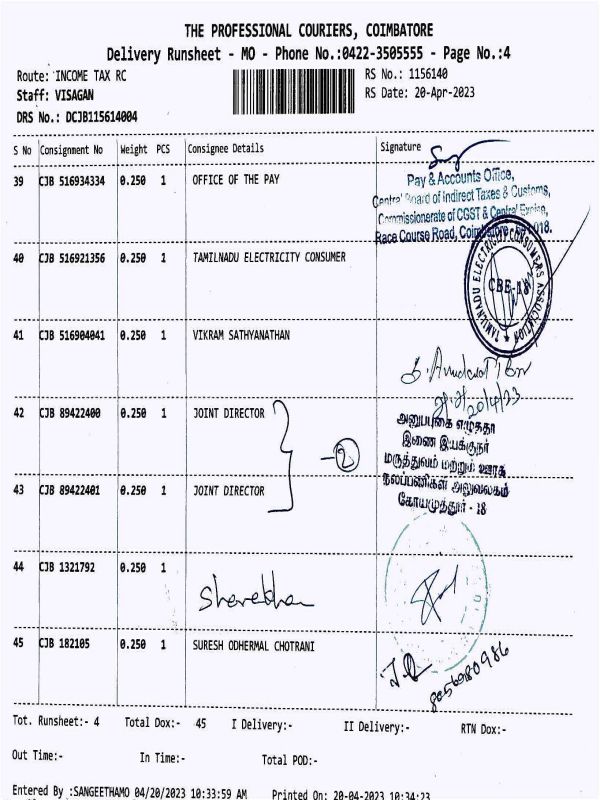 THE PROFESSIONAL COURIERS, COIMBATORE
Delivery Runsheet - MO - Phone No.:0422-3505555 - Page No.:4
Route: INCOME TAX RC RS No.: 1156140
Staff: VISAGAN RS Date: 20-Apr-2023
DRS No.: DCJB115614004
S No Consignment No Weight PCS Consignee Details Signature
39 CJB 516934334 0.250 1 OFFICE OF THE PAY
Pay & Accounts Office,
Central Board of Indirect Taxes & Customs,
Commissionerate of CGST & Central Excise,
Race Course Road, Coimbatore 641 018.
40 CJB 516921356 0.250 1 TAMILNADU ELECTRICITY CONSUMER
TAMILNADU ELECTRICITY CONSUMERS ASSOCIATION
CBE-18
41 CJB 516904041 0.250 1 VIKRAM SATHYANATHAN
20/4/23
42 CJB 89422400 0.250 1 JOINT DIRECTOR
-2
அனுப்புகை எழுத்தர்
இணை இயக்குநர்
மருத்துவம் மற்றும் ஊரக
நலப்பணிகள் அலுவலகம்
கோயமுத்தூர் - 18
43 CJB 89422401 0.250 1 JOINT DIRECTOR
44 CJB 1321792 0.250 1
45 CJB 182105 0.250 1 SURESH ODHERMAL CHOTRANI
8056980986
Tot. Runsheet:- 4 Total Dox:- 45 I Delivery:- II Delivery:- RTN Dox:-
Out Time:- In Time:- Total POD:-
Entered By :SANGEETHAMO 04/20/2023 10:33:59 AM Printed On: 20-04-2023 10:34:23